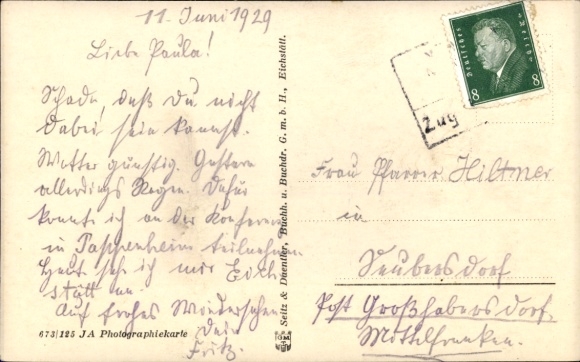 11. Juni 1929
Liebe Paula!
Schade, daß Du nicht
dabei sein kannst.
Wetter günstig. Gestern
allerdings Regen. Dafür
konnte ich an der Konferenz
in Pappenheim teilnehmen.
Heut seh ich mir Eich
stätt an.
Auf frohes Wiedersehen
Dein
Fritz.
673/125 JA Photographiekarte
Seitz & Daentler, Buchh. u. Buchdr. G. m. b. H., Eichstätt.
Deutsches Reich
8 8
Zug
Frau Pfarrer Hiltner
in
Seubersdorf
Post Großhabersdorf.
Mittelfranken.